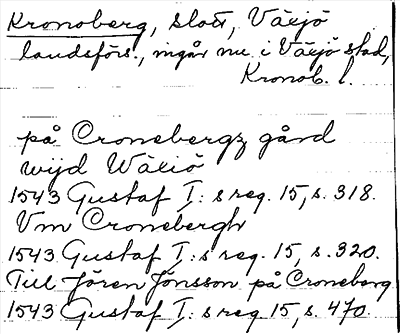 Kronoberg, slott, Växjö
landsförs., ingår nu i Växjö stad,
Kronob. l.
på Cronebergz gård
wijd Wäxiö
1543 Gustaf I:s reg. 15, s. 318.
Vm Cronebergh
1543 Gustaf I:s reg. 15, s. 320.
Till Jören Jönsson på Croneberg
1543 Gustaf I:s reg 15, s. 470.